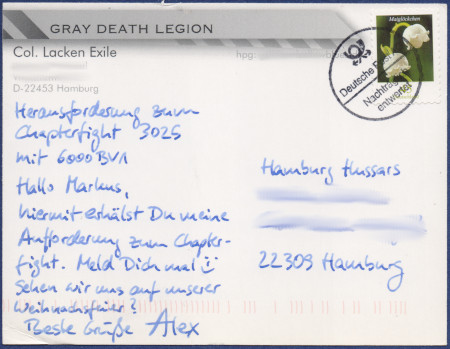 GRAY DEATH LEGION
Col. Lacken Exile
hpg:
D-22453 Hamburg
Maiglöckchen
Deutsche Post
Nachträglich
entwertet
Herausforderung zum
Chapterfight 3025
mit 6000BV!
Hallo Markus,
hiermit erhälst Du meine
Aufforderung zum Chapter-
fight. Meld Dich mal
Sehen wir uns auf unserer
Weihnachsfeier?
Beste Grüße Alex
Hamburg Hussars
22309 Hamburg